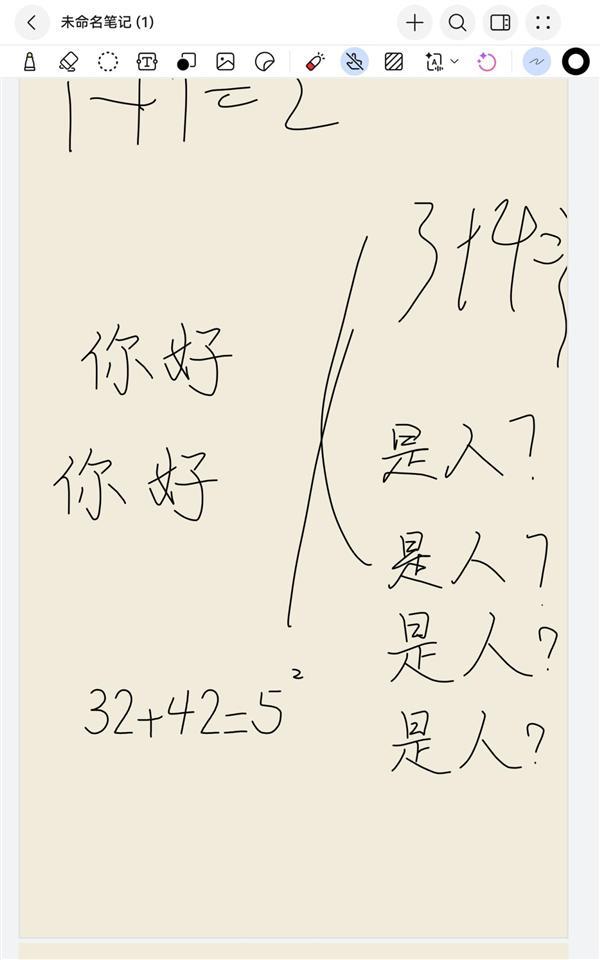 未命名笔记 (1)
1+1=2
3+4=
你好
你好
是人?
是人?
是人?
是人?
32+42=5²